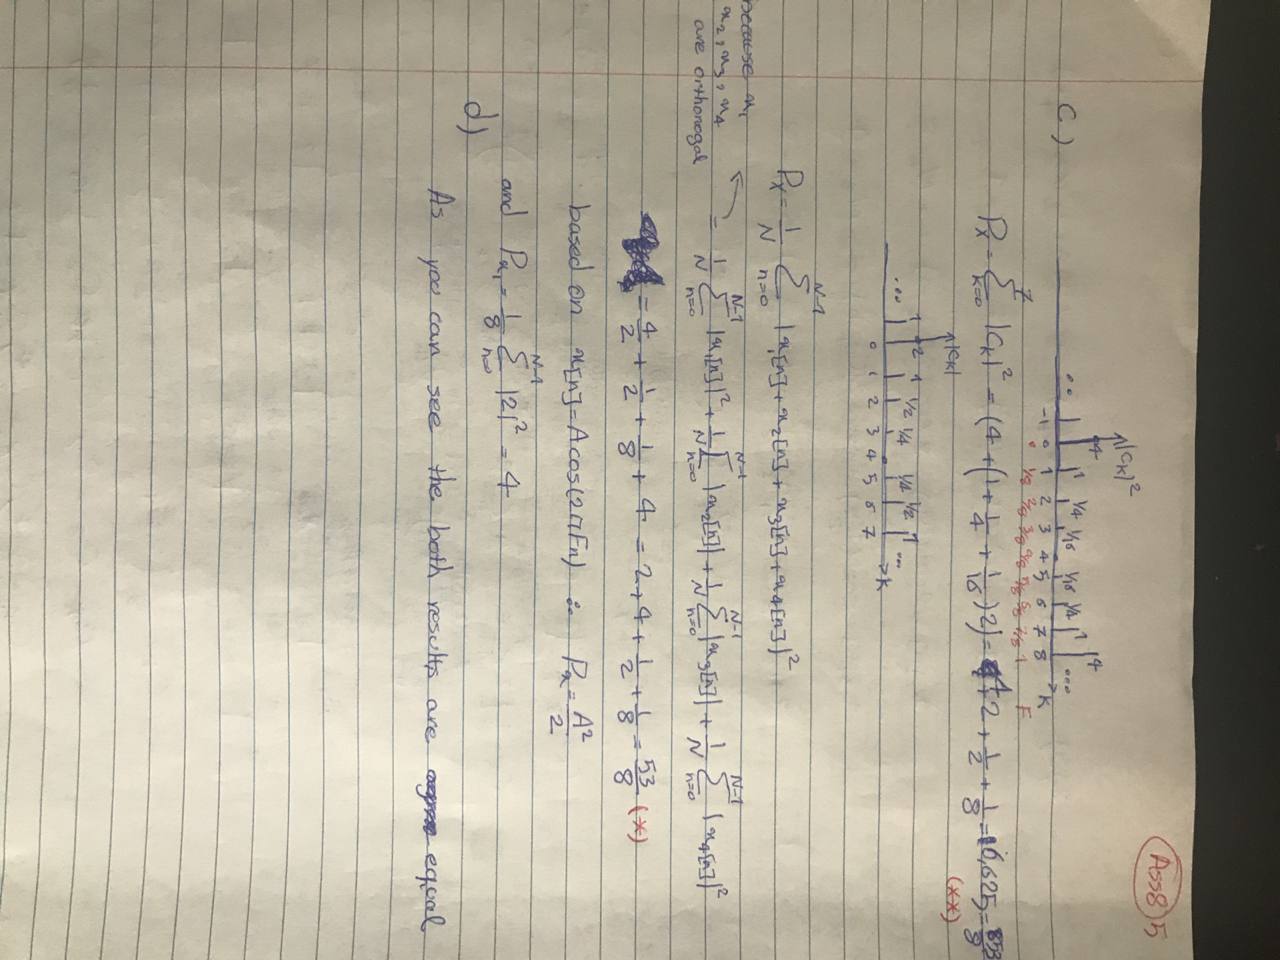 Ass8) 5
c)
↑|Ck|²
.. 4 1 1/4 1/16 1/16 1/4 1 4 ...
-1 0 1 2 3 4 5 6 7 8 →K
0 1/8 2/8 3/8 4/8 5/8 6/8 7/8 1 F
Px = Σ_{k=0}^{7} |Ck|² = (4 + (1 + 1/4 + 1/16)2) = 4 + 2 + 1/2 + 1/8 = 6,625 = 53/8
(**)
↑|Ck|
... 1 2 1 1/2 1/4 1/4 1/2 1 ...
0 1 2 3 4 5 6 7 →K
Px = 1/N Σ_{n=0}^{N-1} |x₁[n] + x₂[n] + x₃[n] + x₄[n]|²
because x₁
x₂, x₃, x₄
are orthonogal
= 1/N Σ_{n=0}^{N-1} |x₁[n]|² + 1/N Σ_{n=0}^{N-1} |x₂[n]| + 1/N Σ_{n=0}^{N-1} |x₃[n]| + 1/N Σ_{n=0}^{N-1} |x₄[n]|²
= 4/2 + 1/2 + 1/8 + 4 = 2 + 4 + 1/2 + 1/8 = 53/8 (*)
based on x[n] = A cos(2πFn) ∴ Px = A²/2
and Px₁ = 1/8 Σ_{n=0}^{N-1} |2|² = 4
d)
As you can see the both results are equal